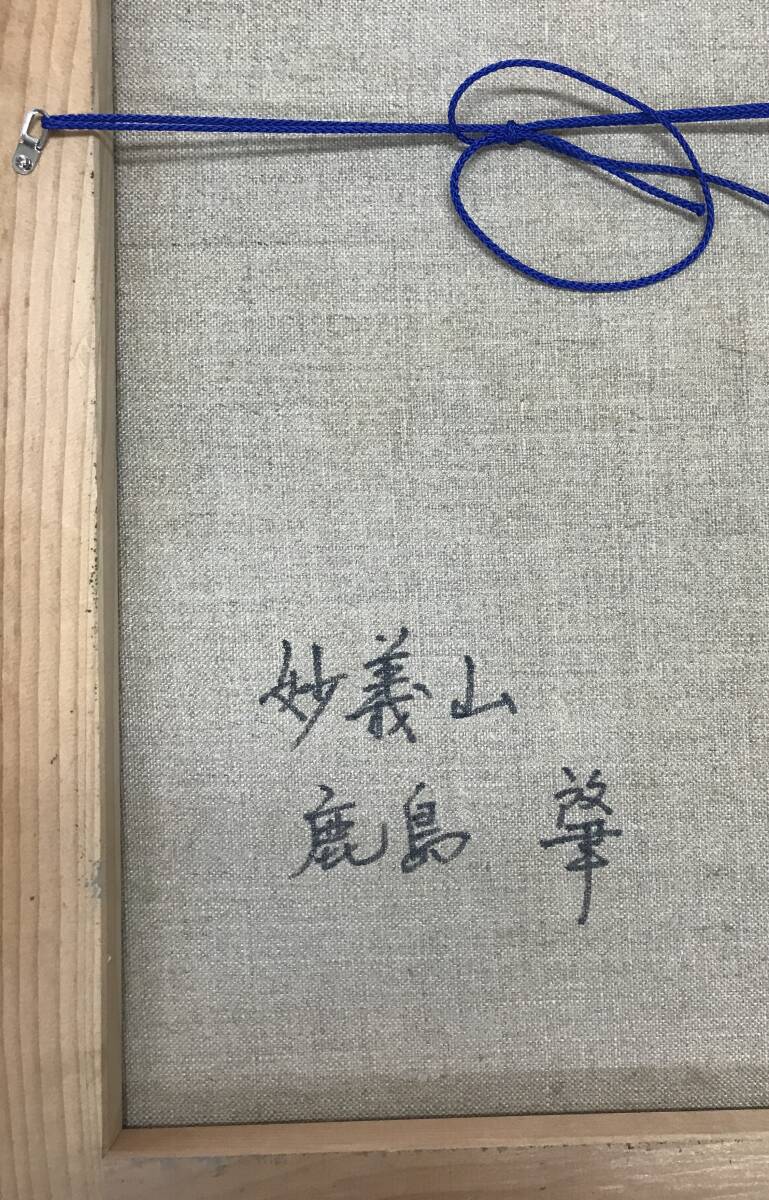 妙義山
鹿島 肇